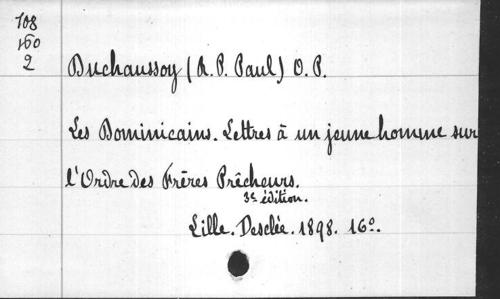 108
160
2
Duchaussoy (R.P. Paul) O.P.
Les Dominicains. Lettres à un jeune homme sur
l'Ordre des Frères Prêcheurs.
3e édition.
Lille. Desclée. 1898. 16º.